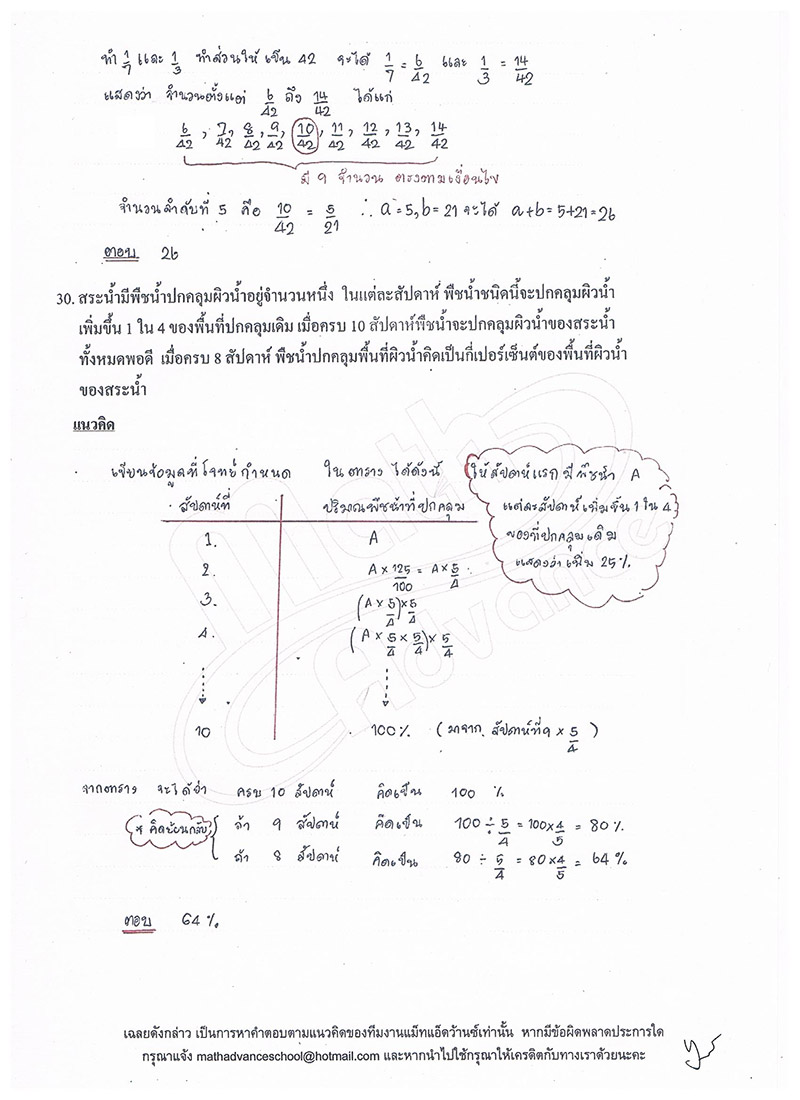 ทำ 1/7 และ 1/3 ทำส่วนให้ เป็น 42 จะได้ 1/7 = 6/42 และ 1/3 = 14/42
แสดงว่า จำนวนตั้งแต่ 6/42 ถึง 14/42 ได้แก่
6/42 , 7/42 , 8/42 , 9/42 , 10/42 , 11/42 , 12/42 , 13/42 , 14/42
มี 9 จำนวน ตรงตามเงื่อนไข
จำนวนลำดับที่ 5 คือ 10/42 = 5/21 ∴ a = 5, b = 21 จะได้ a+b = 5+21 = 26
ตอบ 26
30. สระน้ำมีพืชน้ำปกคลุมผิวน้ำอยู่จำนวนหนึ่ง ในแต่ละสัปดาห์ พืชน้ำชนิดนี้จะปกคลุมผิวน้ำ
เพิ่มขึ้น 1 ใน 4 ของพื้นที่ปกคลุมเดิม เมื่อครบ 10 สัปดาห์พืชน้ำจะปกคลุมผิวน้ำของสระน้ำ
ทั้งหมดพอดี เมื่อครบ 8 สัปดาห์ พืชน้ำปกคลุมพื้นที่ผิวน้ำคิดเป็นกี่เปอร์เซ็นต์ของพื้นที่ผิวน้ำ
ของสระน้ำ
แนวคิด
เขียนข้อมูลที่โจทย์กำหนด ในตาราง ได้ดังนี้
สัปดาห์ที่ ปริมาณพืชน้ำที่ปกคลุม
1. A
2. A × 125/100 = A × 5/4
3. (A × 5/4) × 5/4
4. (A × 5/4 × 5/4) × 5/4
10 100% (มาจาก สัปดาห์ที่ 9 × 5/4)
ให้สัปดาห์แรก มีพืชน้ำ A
แต่ละสัปดาห์เพิ่มขึ้น 1 ใน 4
ของที่ปกคลุมเดิม
แสดงว่าเพิ่ม 25%
จากตาราง จะได้ว่า ครบ 10 สัปดาห์ คิดเป็น 100 %
* คิดย้อนกลับ
ถ้า 9 สัปดาห์ คิดเป็น 100 ÷ 5/4 = 100 × 4/5 = 80 %
ถ้า 8 สัปดาห์ คิดเป็น 80 ÷ 5/4 = 80 × 4/5 = 64 %
ตอบ 64 %
Math Advance
เฉลยดังกล่าว เป็นการหาคำตอบตามแนวคิดของทีมงานแม็ทแอ็ดว้านซ์เท่านั้น หากมีข้อผิดพลาดประการใด
กรุณาแจ้ง mathadvanceschool@hotmail.com และหากนำไปใช้กรุณาให้เครดิตกับทางเราด้วยนะคะ